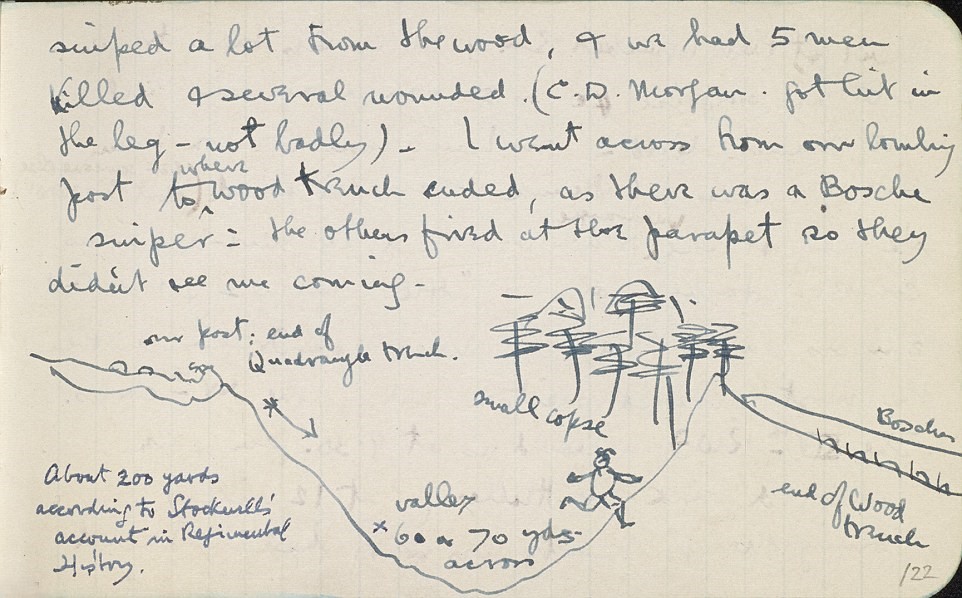 sniped a lot from the wood, & we had 5 men
killed & several wounded. (C.D. Morgan. got hit in
the leg – not badly). I went across from our bombing
post to where wood trench ended, as there was a Bosche
sniper: the others fired at the parapet so they
didn't see me coming.
our post: end of
Quadrangle trench.
small copse
Bosches
About 200 yards
according to Stockwell's
account in Regimental
History.
valley
60 or 70 yds.
across
end of Wood
trench
122